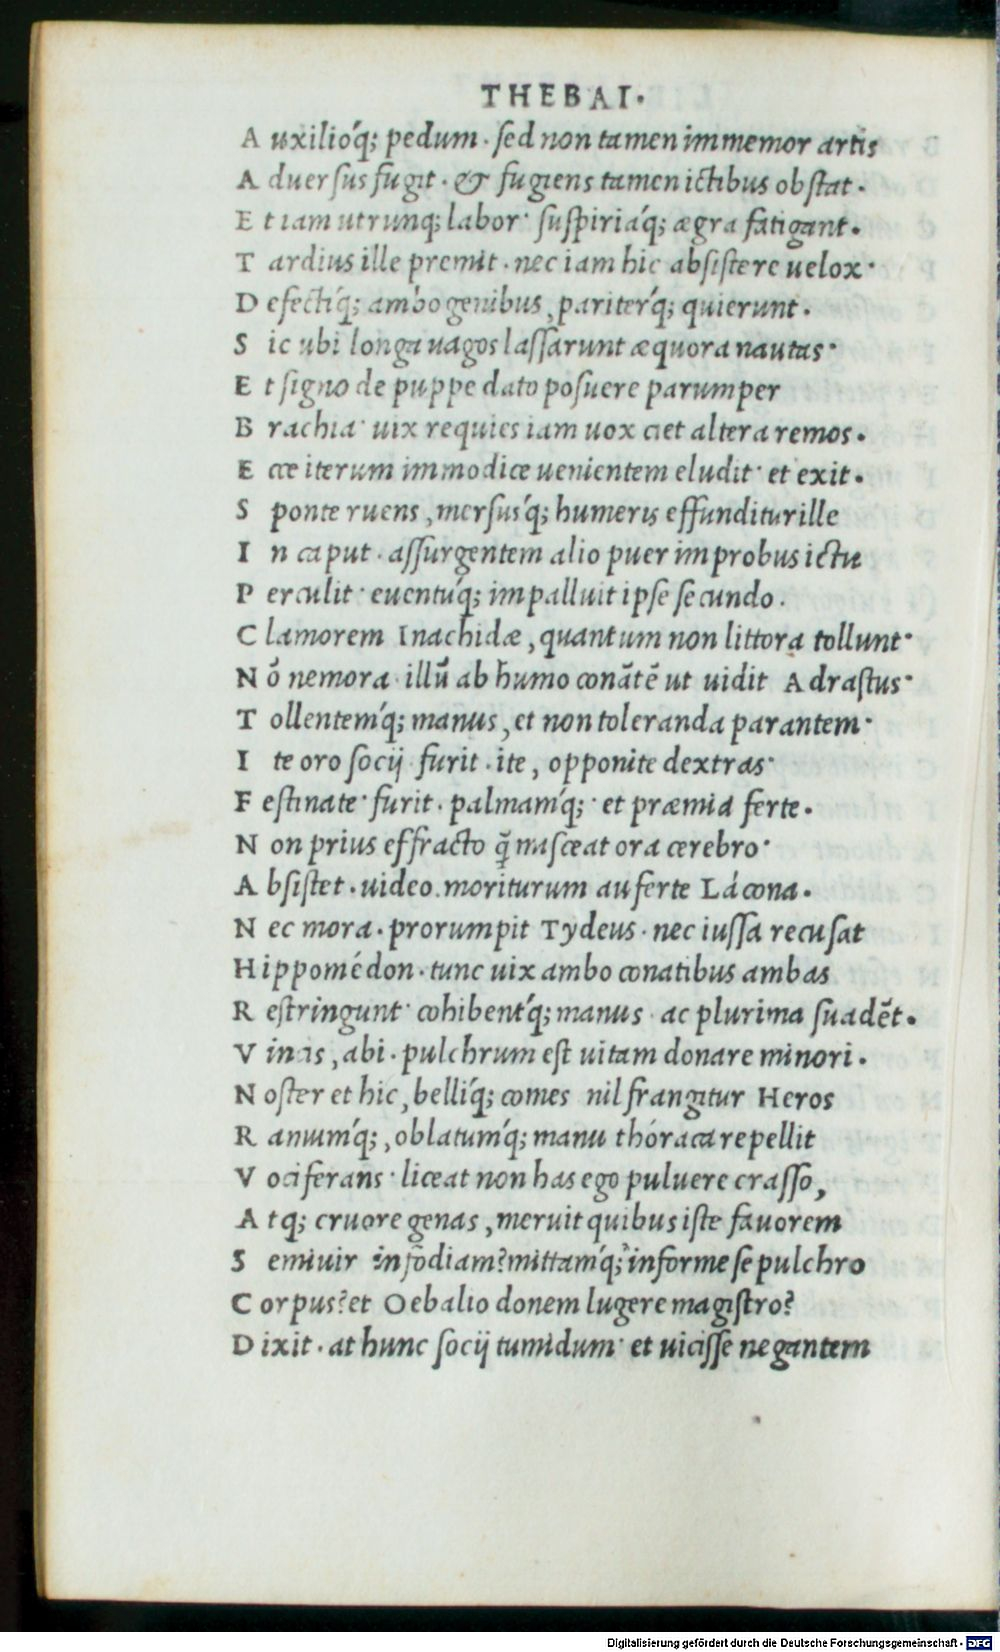 THEBAI.
A uxilio´q; pedum · sed non tamen immemor artis
A duersus fugit · & fugiens tamen ictibus obstat.
E t iam utrunq; labor· suspiria´q; ægra fatigant.
T ardius ille premit · nec iam hic absistere uelox·
D efecti´q; ambo genibus, pariter´q; quierunt.
S ic ubi longa uagos lassarunt æquora nautas·
E t signo de puppe dato posuere parumper
B rachia· uix requies iam uox ciet altera remos.
E cce iterum immodice uenientem eludit· et exit.
S ponte ruens, mersus´q; humeris effunditur ille
I n caput · assurgentem alio puer improbus ictu
P erculit· euentu´q; impalluit ipse secundo.
C lamorem Inachidæ, quantum non littora tollunt·
N õ nemora· illũ ab humo conãtẽ ut uidit Adrastus·
T ollentem´q; manus, et non toleranda parantem·
I te oro socij· furit · ite, opponite dextras·
F estinate· furit · palmam´q;· et præmia ferte.
N on prius effracto q̃ misceat ora cerebro·
A bsistet · uideo. moriturum auferte Lácona.
N ec mora · prorumpit Tydeus · nec iussa recusat
H ippomédon · tunc uix ambo conatibus ambas
R estringunt· cohibent´q; manus· ac plurima suadẽt.
V incis, abi · pulchrum est uitam donare minori.
N oster et hic, belli´q; comes nil frangitur Heros
R amum´q;, oblatum´q; manu thóraca repellit
V ociferans· liceat non has ego puluere crasso,
A tq; cruore genas, meruit quibus iste fauorem
S emiuir infõdiam? mittam´q; informe sepulchro
C orpus? et Oebalio donem lugere magistro?
D ixit · at hunc socij tumidum· et uicisse negantem
Digitalisierung gefördert durch die Deutsche Forschungsgemeinschaft - DFG